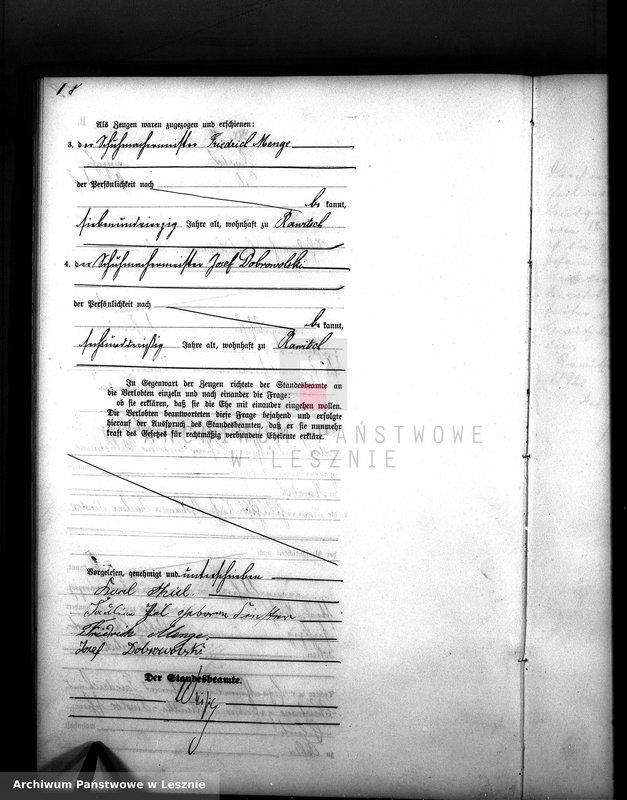 18
Als Zeugen waren zugezogen und erschienen:
3. der Schuhmachermeister Friedrich Menge
der Persönlichkeit nach
be kannt,
siebenundvierzig Jahre alt, wohnhaft zu Rawitsch
4. der Schuhmachermeister Josef Dobrowolski
der Persönlichkeit nach
be kannt,
sechsunddreißig Jahre alt, wohnhaft zu Rawitsch
In Gegenwart der Zeugen richtete der Standesbeamte an
die Verlobten einzeln und nach einander die Frage:
ob sie erklären, daß sie die Ehe mit einander eingehen wollen.
Die Verlobten beantworteten diese Frage bejahend und erfolgte
hierauf der Ausspruch des Standesbeamten, daß er sie nunmehr
kraft des Gesetzes für rechtmäßig verbundene Eheleute erkläre.
ARCHIWUM PAŃSTWOWE
W LESZNIE
Vorgelesen, genehmigt und unterschrieben
Karl Thiel.
Pauline geborene
Friedrich Menge.
Josef Dobrowolski
Der Standesbeamte.
Archiwum Państwowe w Lesznie